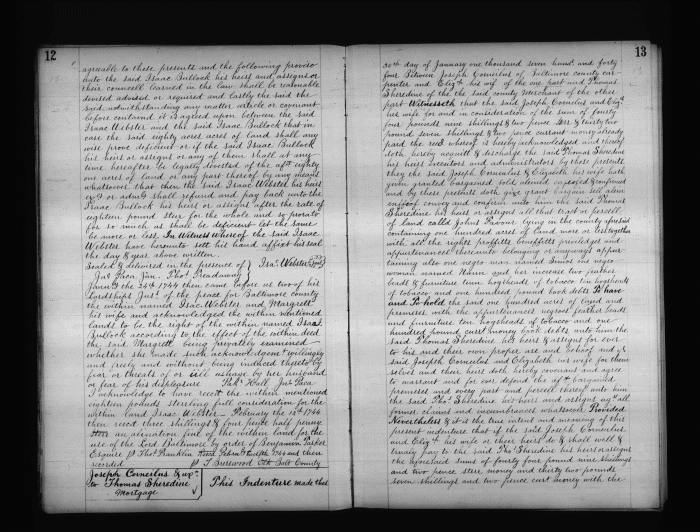 12
agreeable to these presents and the following proviso
unto the said Isaac Bullock his heirs and assigns or
their councell learned in the law shall be reasonable
devised advised or required and Lastly the said
said notwithstanding any matter article or covenant
before contained it is agreed upon between the said
Isaac Webster and the said Isaac Bullock that in
case the said eighty acres acres of land shall any
wise prove deficient or if the said Isaac Bullock
his heirs or assigns or any of them shall at any
time hereafter be legally devicted of the afd eighty
one acres of land or any part thereof by any means
whatsoever that then the said Isaac Webster his heirs
exrs or admrs shall refund and pay back unto the
Isaac Bullock his heirs or assigns after the rate of
eighteen pounds sterr for the whole and so prorato
for so much as shall be deficient let the same
be more or less. In Witness whereof the said Isaac
Webster have hereunto sett his hand affixt his seal
the day & year above written.
Sealed & delivered in the presence of Isac Webster
Jno Paca Jun. Thos Treadway
Janry the 24th 1744 then came before us two of his
Lordships Justs of the peace for Baltimore county
the within named Isaac Webster and Margarett
his wife and acknowledged the within mentioned
lands to be the right of the within named Isaac
Bullock according to the effect of the within deed
the said Margrett being privately examined
whether she made such acknowledgmt willingly
and freely and without being induced thereto by
fear or threats of or ill usage by her husband
or fear of his displeasure Pak Hall Jno Paca
I acknowledge to have recd the within mentioned
eighteen pounds sterling full consideration for the
within land Isaac Webster - February the 12th 1744
then recd three shillings & four pence half penny
sterr an alienation fine of the within land for the
use of the Lord Baltimore by order of Benjamin Tasker
Esquire P Thos Franklin 1744 and then
recorded P T Brerewood Clk Balt County
Joseph Cornelius & uxr
to Thomas Sheredine
Mortgage
This Indenture made this
13
30th day of January one thousand seven hund. and forty
four Between Joseph Cornelius of Baltimore county car-
penter and Elizth his wife of the one part and Thomas
Sheredine of the the said county Merchant of the other
part Witnesseth that the said Joseph Cornelius and Elizth
his wife for and in consideration of the sum of fourty
four pounds nine shillings & two pence sterr & thirty two
pound seven shillings & two pence currant money already
paid the rect whereof is hereby acknowledged and thereof
doth hereby acquitt & discharge the said Thomas Sheredine
his heirs executors and administrators by these presents
they the said Joseph Cornelius & Elizabeth his wife hath
given granted bargained sold aliened enfeofed & confirmed
and by these presents doth give grant bargain sell alien
enffeoff convey and confirm unto him the said Thomas
Sheredine his heirs or assigns all that tract or parcell
of land called Johns Favour lying in the county aforesaid
containing one hundred acres of land more or less together
with all the rights proffitts benefitts priviledges and
appurtenances thereunto belonging or anyways apper
taining also one negro man named Simon one negroe
woman named Hann and her increase two feather
beads & furniture tenn hogsheads of tobacco ten hogsheads
of tobacco and one hundred pound book debts To have
and To hold the said one hundred acres of land and
premises with the appurtenances negroes feather beads
and furniture ten hogsheads of tobacco and one
hundred pound curst money back debts unto him the
said Thomas Sheredine his heirs & assigns for ever
to his and their own proper use and behoof and ye
said Joseph Cornelius and Elizabeth his wife for them
selves and their heirs doth hereby covenant and agree
to warrant and for ever defend the afsd bargained
premises and every part and percell thereof unto him
the said Thos Sheredine his heirs and assigns agst all
former claims and incumbrances whatsoever Provided
Nevertheless & it is the true intent and meaning of this
present indenture that if the said Joseph Cornelius
and Elizth his wife or their heirs do & shall well &
truely pay to the said Thos Sheredine his heirs or assigns
the aforesaid sums of fourty four pound nine shillings
and two pence sterr money and thirty two pounds
seven shillings and two pence curt money with the